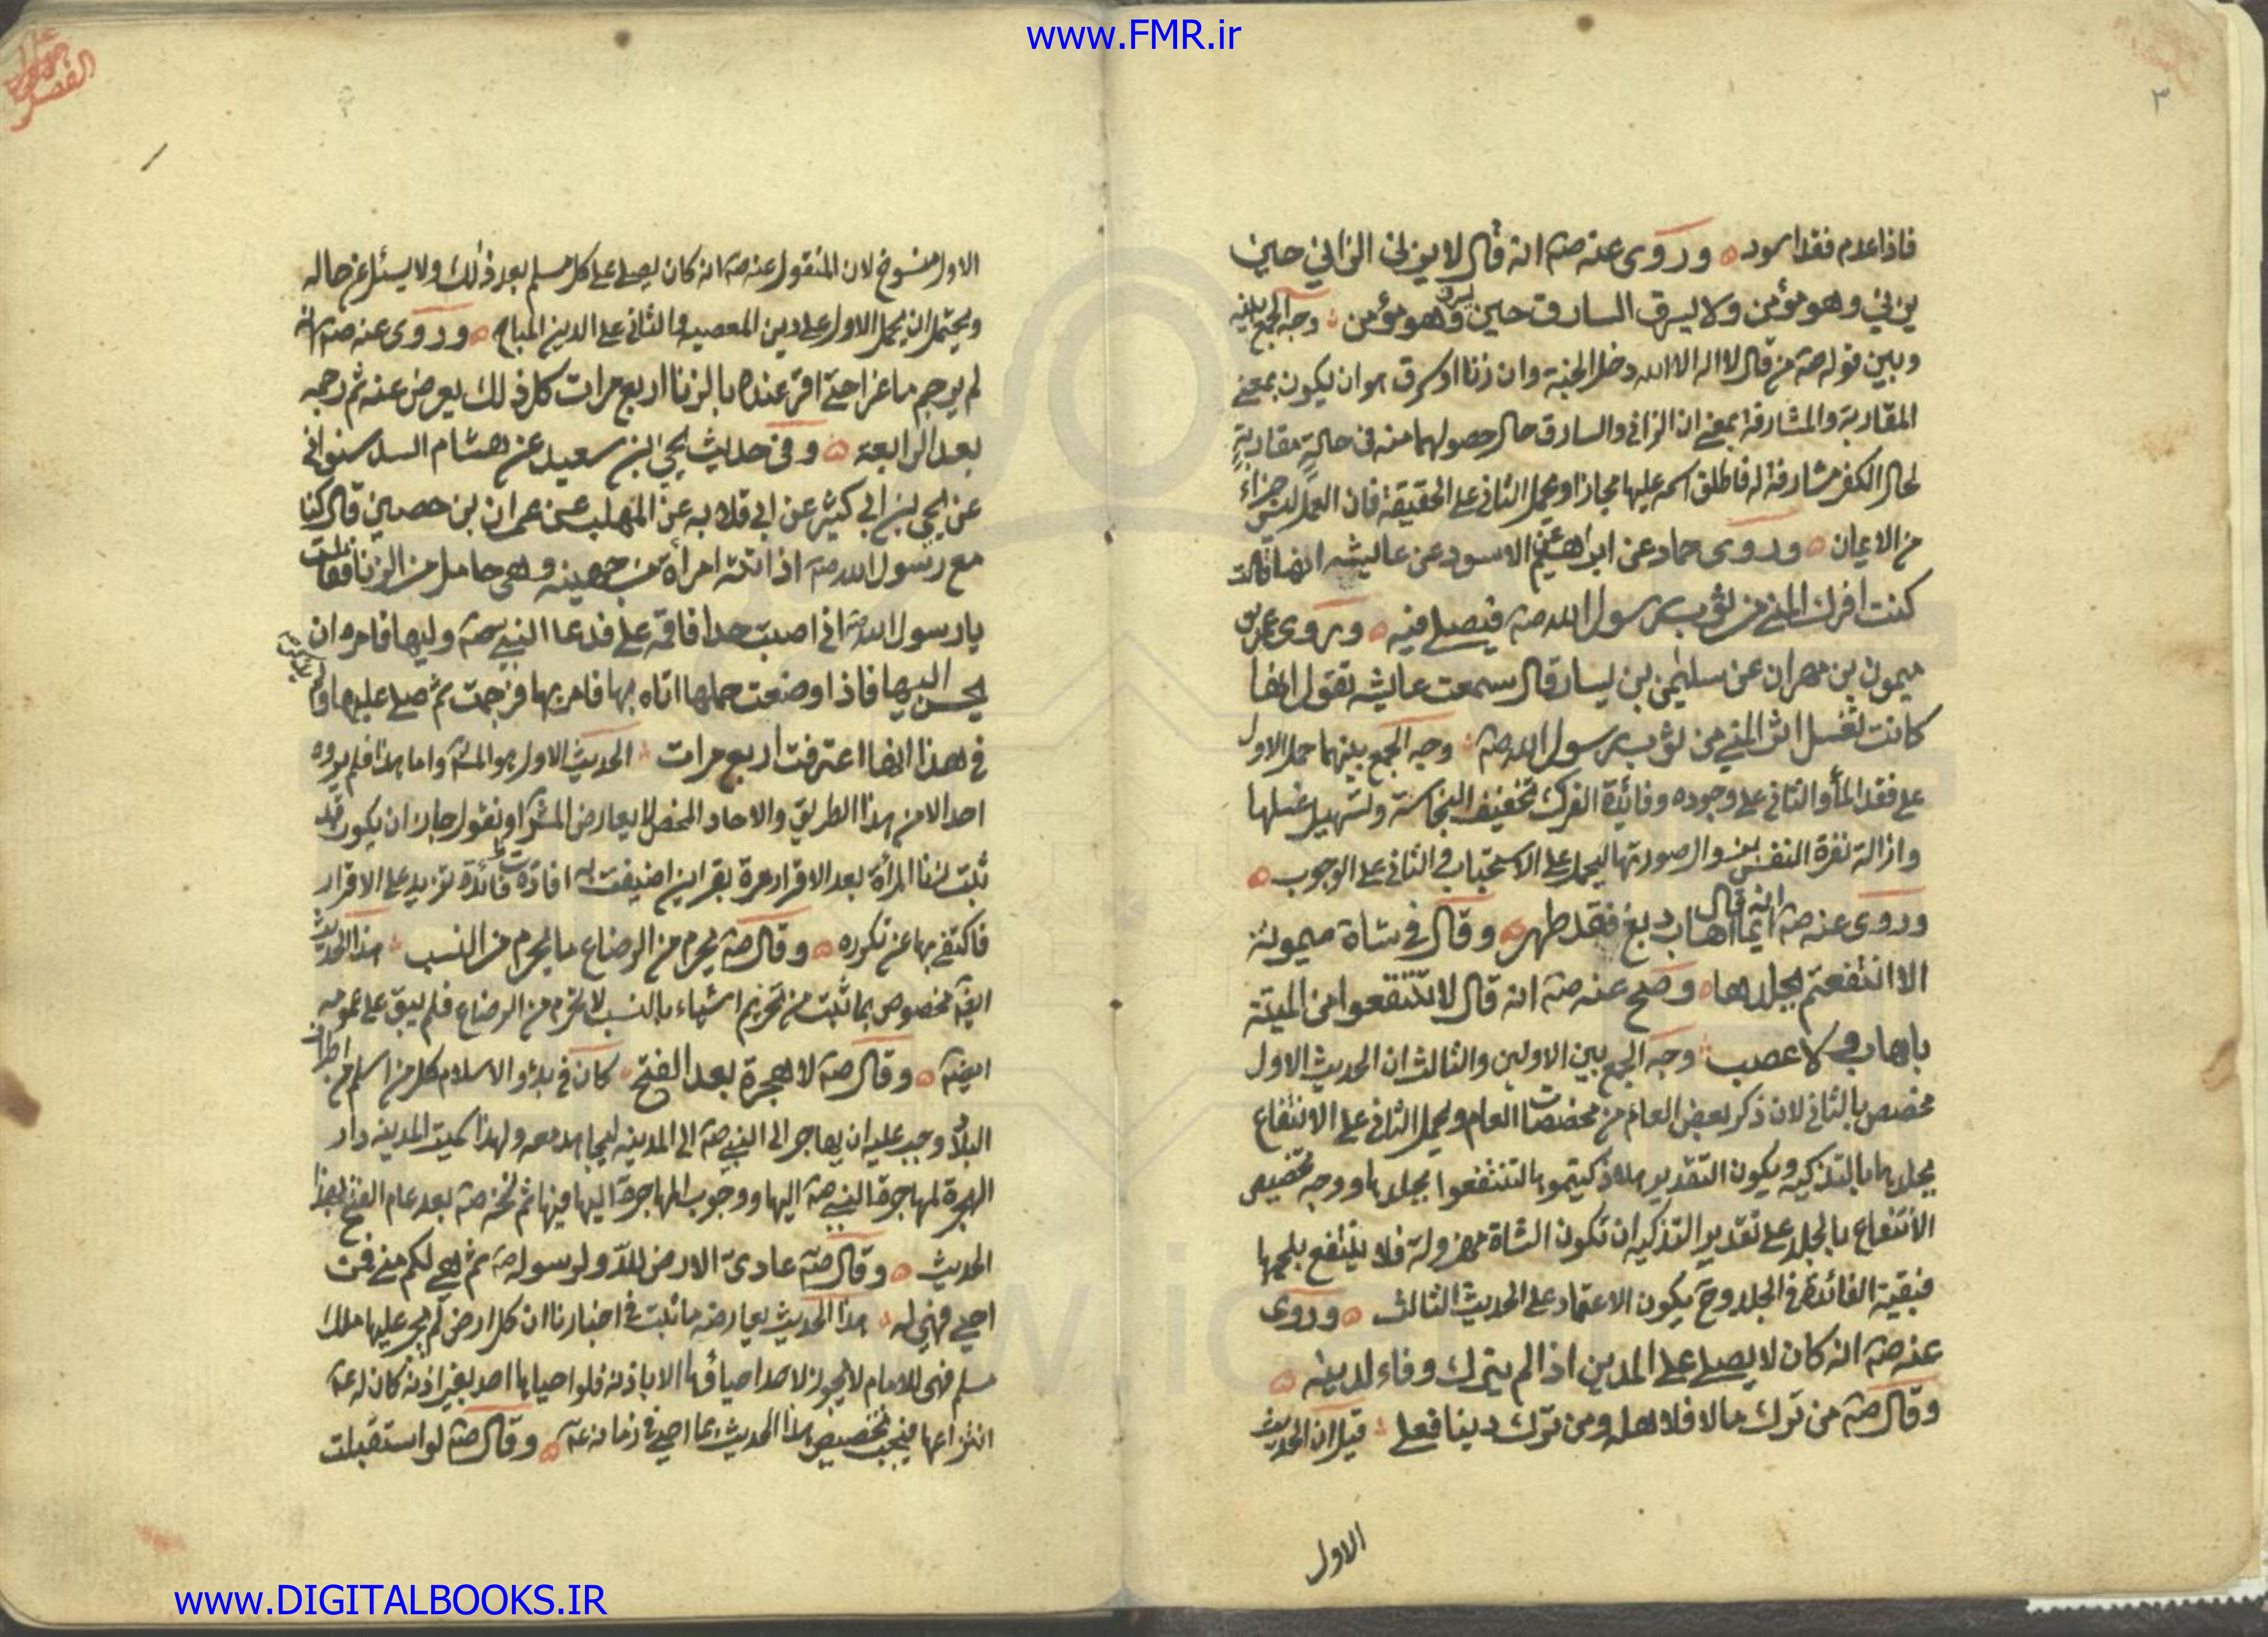 www.FMR.ir
٣
فاذا عدم فقد اسود وروى عنه صه انه قال لا يزنى الزانى حين
يزنى وهو مؤمن ولا يسرق السارق حين يسرق وهو مؤمن وجه الجمع بينه
وبين قوله صه من قال لا اله الا الله دخل الجنة وان زنا او سرق هو ان يكون بمعنى
المقاربة والمشارفة بمعنى ان الزانى والسارق حال حصولهما منه فى حالة مقاربة
لحال الكفر مشارفة له فاطلق اسمه عليها مجازا ويحمل الثانى على الحقيقة فان العمل ليس جزاء
من الايمان وروى حماد عن ابراهيم عن الاسود عن عايشه انها قالت
كنت افرك المنى من ثوب رسول الله صه فيصلى فيه وروى عمر بن
ميمون بن مهران عن سليمن بن يسار قال سمعت عايشه تقول انها
كانت تغسل اثر المنى من ثوب رسول الله صه وجه الجمع بينهما حمل الاول
على فقد الماء والثانى على وجوده وفائدة الفرك تخفيف النجاسة وتسهيل غسلها
وازالة نفرة النفس بزوال صورتها ليحمل على الاستحباب فى الثانى على الوجوب
وروى عنه صه انه قال ايما اهاب دبغ فقد طهر وقال فى شاة ميمونة
الا انتفعتم بجلدها وصح عنه صه انه قال لا تنتفعوا من الميتة
باهاب ولا عصب وجه الجمع بين الاولين والثالث ان الحديث الاول
مخصص بالثانى لان ذكر بعض العام من مخصصات العام ويحمل الثانى على الانتفاع
بجلدها بالتذكيه ويكون التقدير هلا ذكيتموها لتنتفعوا بجلدها ووجه تخصيص
الانتفاع بالجلد على تقدير التذكيه ان تكون الشاة مهزولة فلا ينتفع بلحمها
فبقية الفائدة فى الجلد وح يكون الاعتماد على الحديث الثالث وروى
عنه صه انه كان لا يصلى على المدين اذا لم يترك وفاء لدينه
وقال صه من ترك مالا فلاهله ومن ترك دينا فعلى قيل ان الحديث
الاول
الاول منسوخ لان المنقول عنه صه انه كان يصلى على كل مسلم بعد ذلك ولا يسئل عن حاله
ويحتمل ان يحمل الاول على دين المعصيه والثانى على الدين المباح وروى عنه صه انه
لم يرجم ماعزا حتى اقر عنده بالزنا اربع مرات كل ذلك يعرض عنه ثم رجمه
بعد الرابعة وفى حديث يحيى بن سعيد عن هشام الدستوانى
عن يحيى بن ابى كثير عن ابى قلابه عن المهلب عن عمران بن حصين قال كنا
مع رسول الله صه اذ اتته امرأة من جهينه وهى حامل من الزنا فقالت
يا رسول الله انى اصبت حدا فاقمه على فدعا النبى صه وليها فامره ان
يحسن اليها فاذا وضعت حملها اتاه بها فامر بها فرجمت ثم صلى عليها ولم
فى هذا انها اعترفت اربع مرات الحديث الاول هو المشهور واما هذا فلم يروه
احد الا من هذا الطريق والاحاد المحض لا يعارض المشهور او نقول جاز ان يكون قد
ثبت زنا المرأة بعد الاقرار مرة بقراين اضيفت له افادت فائدة تزيد على الاقرار
فاكتفى بها عن تكرره وقال صه يحرم من الرضاع ما يحرم من النسب هذا الحديث
ايضه مخصوص بما ثبت من تحريم اشياء بالنسب لا تحرم من الرضاع فلم يبق على عمومه
ايضه وقال صه لا هجرة بعد الفتح كان فى بدؤ الاسلام كل من اسلم من اطراف
البلاد وجب عليه ان يهاجر الى النبى صه الى المدينه ليجاهد معه ولهذا سميت المدينه دار
الهجرة لمهاجرة النبى صه اليها ووجوب المهاجرة اليها فيها ثم نسخه صه بعد عام الفتح بهذا
الحديث وقال صه عادى الارض لله ولرسوله صه ثم هى لكم منى فمن
احيى فهى له هذا الحديث يعارضه ما ثبت فى اخبارنا ان كل ارض لم يجر عليها ملك
مسلم فهى للامام لا يجوز لاحد احياؤها الا باذنه فلو احياها احد بغير اذنه كان له عه
انتزاعها فيجب تخصيص هذا الحديث بما احيى فى زمانه عه وقال صه لو استقبلت
www.DIGITALBOOKS.IR